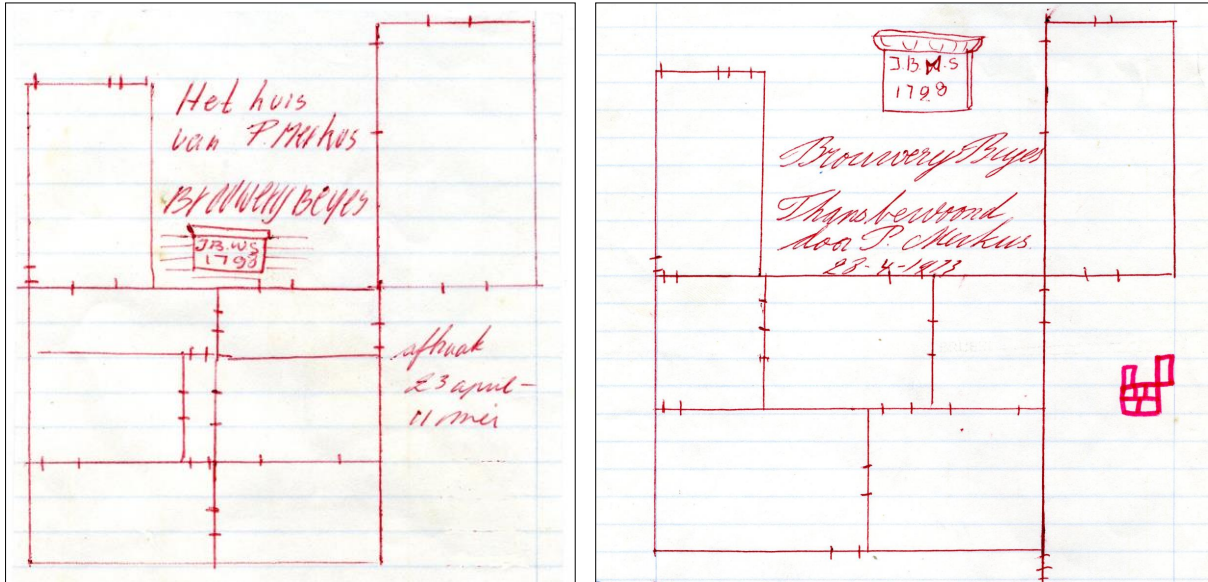 Het huis
van P. Merkus
Brouwery Beyes
J.B.W.S
1798
afbraak
23 april -
11 mei
J.B.M.S
1798
Brouwery Buyes
Thans bewoond
door P. Merkus
23-4-1973